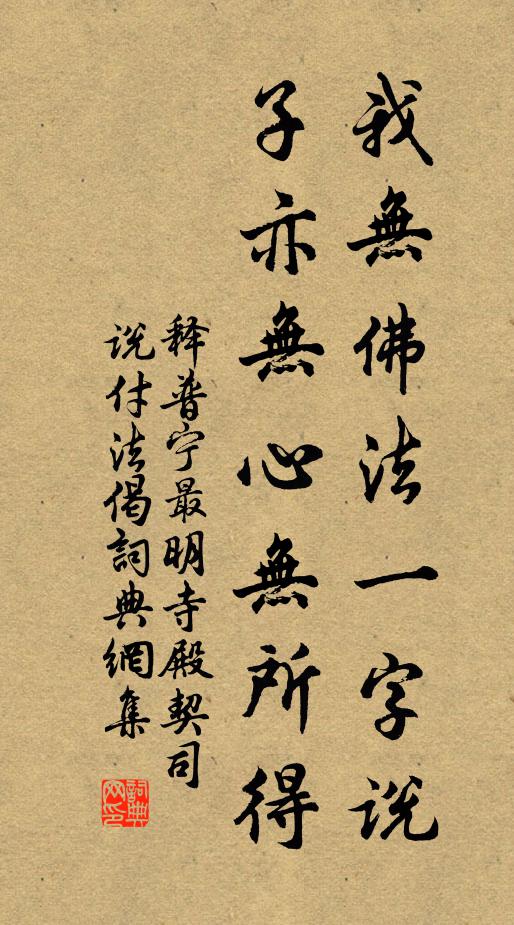 我無佛法一字説
子亦無心無所得
釋普宁最明寺殿契司
説付法偈詞典網集
詞典
网印